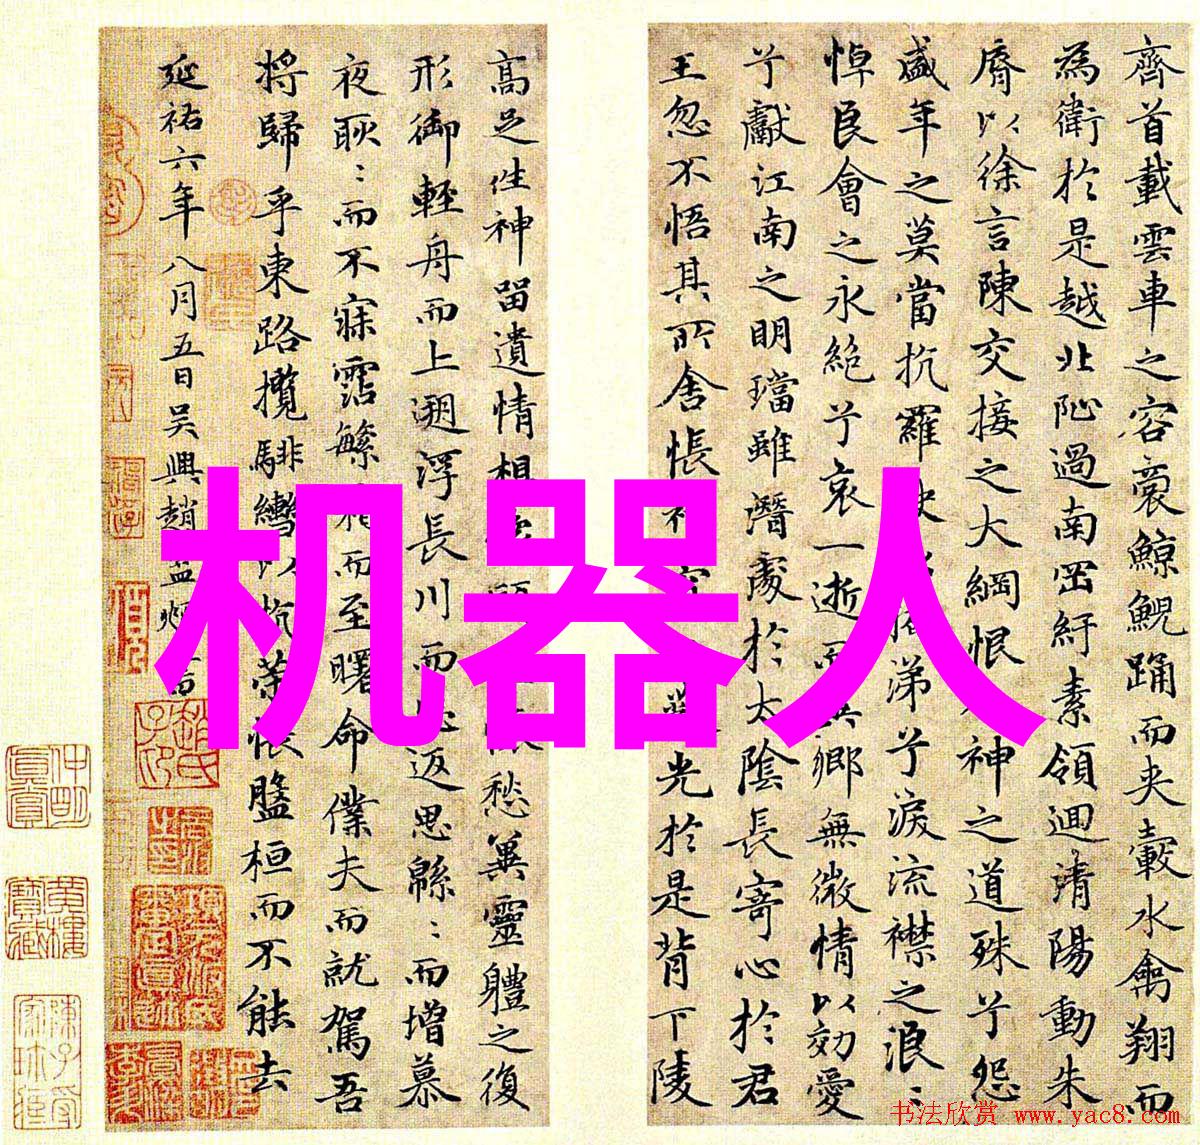 齊首載雲車之容裔鯨鯢踊而夾轂水禽翔而
為衛於是越北沚過南岡紆素領迴清陽動朱
脣以徐言陳交接之大綱恨神之道殊兮怨
盛年之莫當抗羅涕兮淚流襟之浪〻
悼良會之永絕兮哀一逝而鄉無微情以効愛
兮獻江南之明璫雖潛處於太陰長寄心於君
王忽不悟其所舍悵光於是背下陵
高足往神留遺情想愁冀靈體之復
形御輕舟而上遡浮長川而返思緜〻而增慕
夜耿〻而不寐霑繁霜而至曙命僕夫而就駕吾
將歸乎東路攬騑轡以抗策悵盤桓而不能去
延祐六年八月五日吳興趙孟頫
机器人
书法欣赏 www.yac8.com